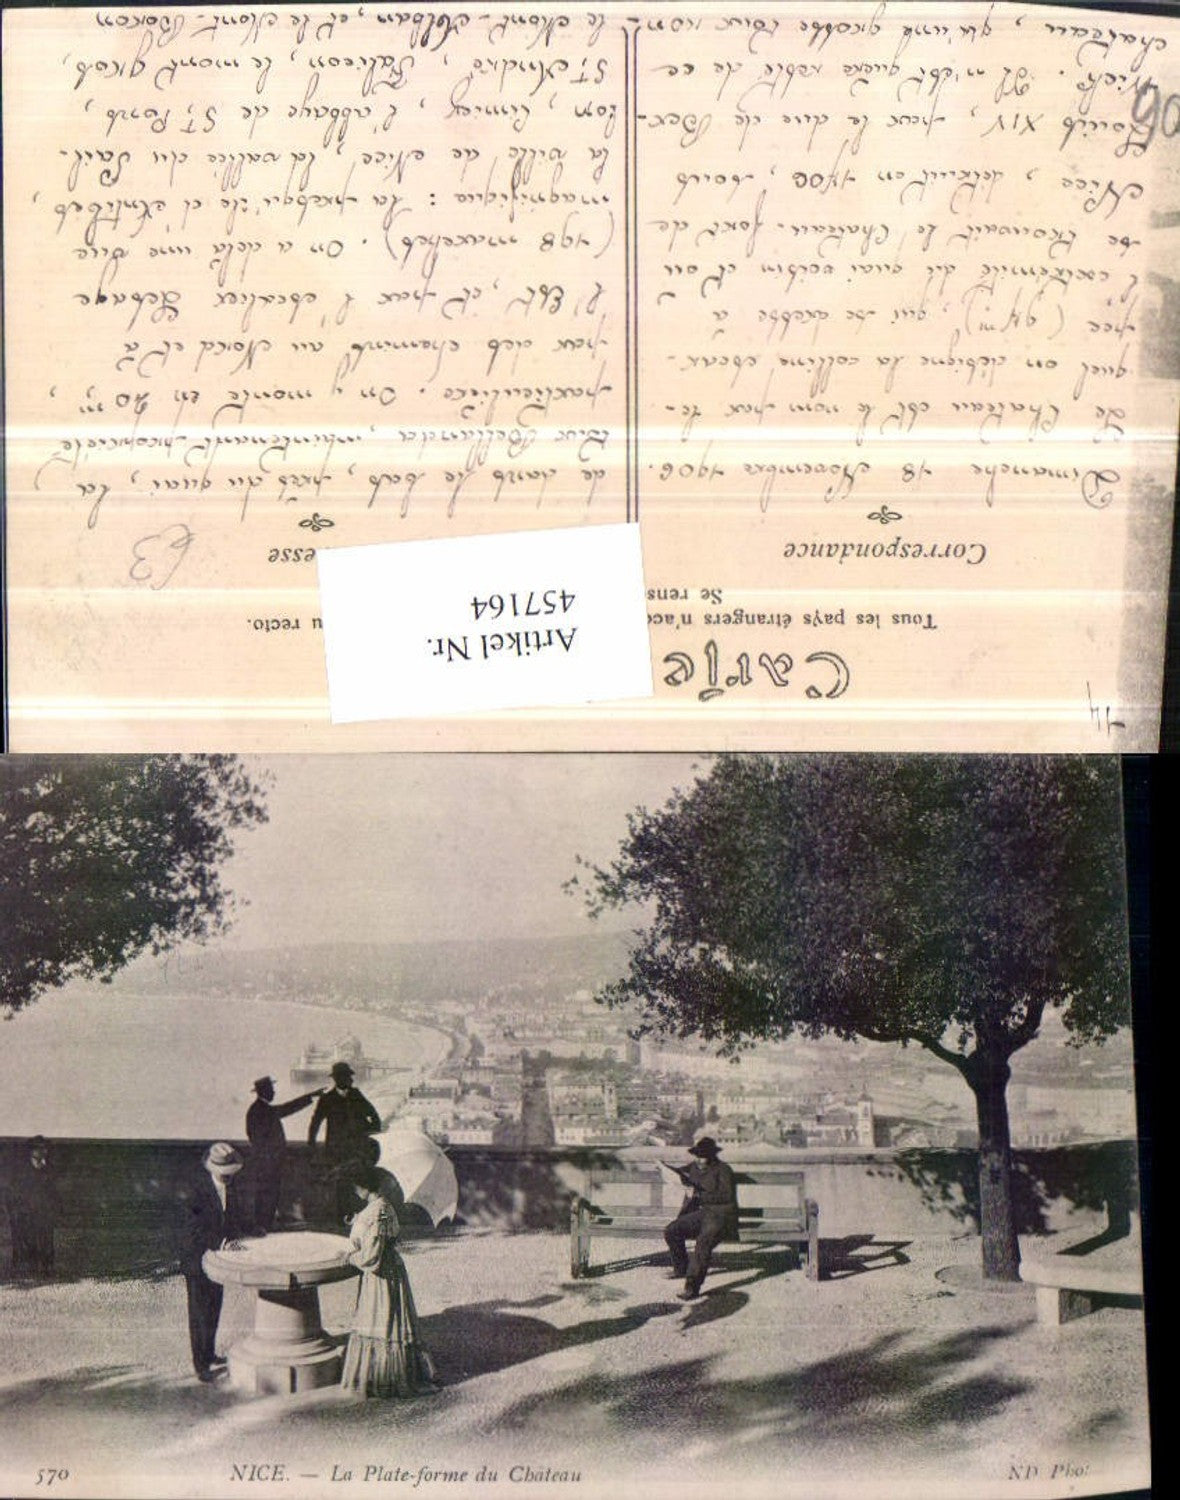 14
Carte
Tous les pays étrangers n'acc
u recto.
Se rens
Artikel Nr.
457164
Correspondance
esse
63
Dimanche 18 Novembre 1906.
Le Château est le nom par le-
quel on désigne la colline escar-
pée (97m), qui se dresse à
l'extrémité du quai voisin et où
se trouvait le Château-fort de
Nice, détruit en 1706, sous
Louis XIV, par le duc de Ber-
wick. Il n'est guère resté de ce
château, qu'une grosse tour ron-
de dans le bas, près du quai, la
tour Bellanda, maintenant propriété
particulière. On y monte en 20 m,
par des chemins au Nord et à
l'Est, et par l'escalier Lesage
(498 marches). On a delà une vue
magnifique : la presqu'île d'Antibes,
la ville de Nice, la vallée du Pail-
lon, Cimiez, l'abbaye de St Pons,
St André, Falicon, le mont gros,
le Mont-Alban, et le Mont-Boron
570
NICE. — La Plate-forme du Château
ND Phot